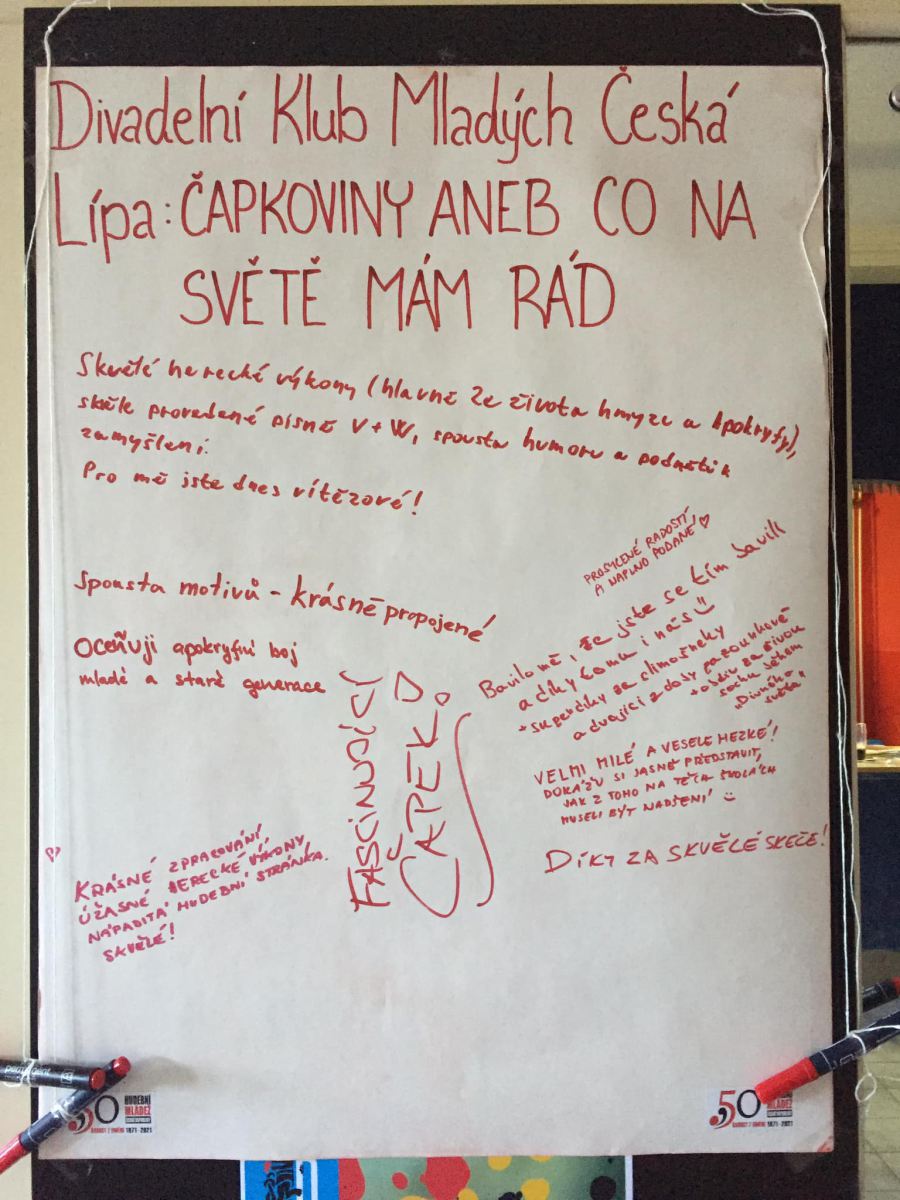 Divadelní Klub Mladých Česká
Lípa: ČAPKOVINY ANEB CO NA
SVĚTĚ MÁM RÁD
Skvělé herecké výkony (hlavně Ze života hmyzu a Apokryfy),
skvěle provedené písně V+W, spousta humoru a podnětů k
zamyšlení.
Pro mě jste dnes vítězové!
PROSYCENÉ RADOSTÍ,
A NAPLNO PODANÉ ♡
Spousta motivů - krásně propojené
Oceňuji apokryfní boj
mladé a staré generace
Bavilo mě, že jste se tím bavili
a díky tomu i nás
+ super díky za
a dvojici z
+ obdiv za živou
sochu během
"Divného
světa"
FASCINUJÍCÍ
ČAPEK!
VELMI MILÉ A VESELE HEZKÉ!
DOKÁŽU SI JASNĚ PŘEDSTAVIT,
JAK Z TOHO NA TĚCH ŠKOLÁCH
MUSELI BÝT NADŠENÍ!
DÍKY ZA SKVĚLÉ SKEČE!
KRÁSNÉ ZPRACOVÁNÍ,
ÚŽASNÉ HERECKÉ VÝKONY
NÁPADITÁ HUDEBNÍ STRÁNKA.
SKVĚLÉ!
50
HUDEBNÍ
MLÁDEŽ
1971-2021
50
MLÁDEŽ
1971-2021